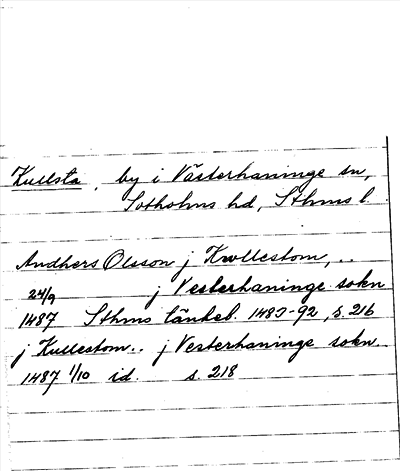 Kullsta, by i Västerhaninge sn,
Sotholms hd, Sthms l.
Andhers Olsson j Kwllestom, ..
24/9 j Vesterhaninge sokn
1487 Sthms tänkeb. 1483-92, s. 216
j Kullestom.. j Vesterhaninge sokn..
1487 1/10 id. s. 218